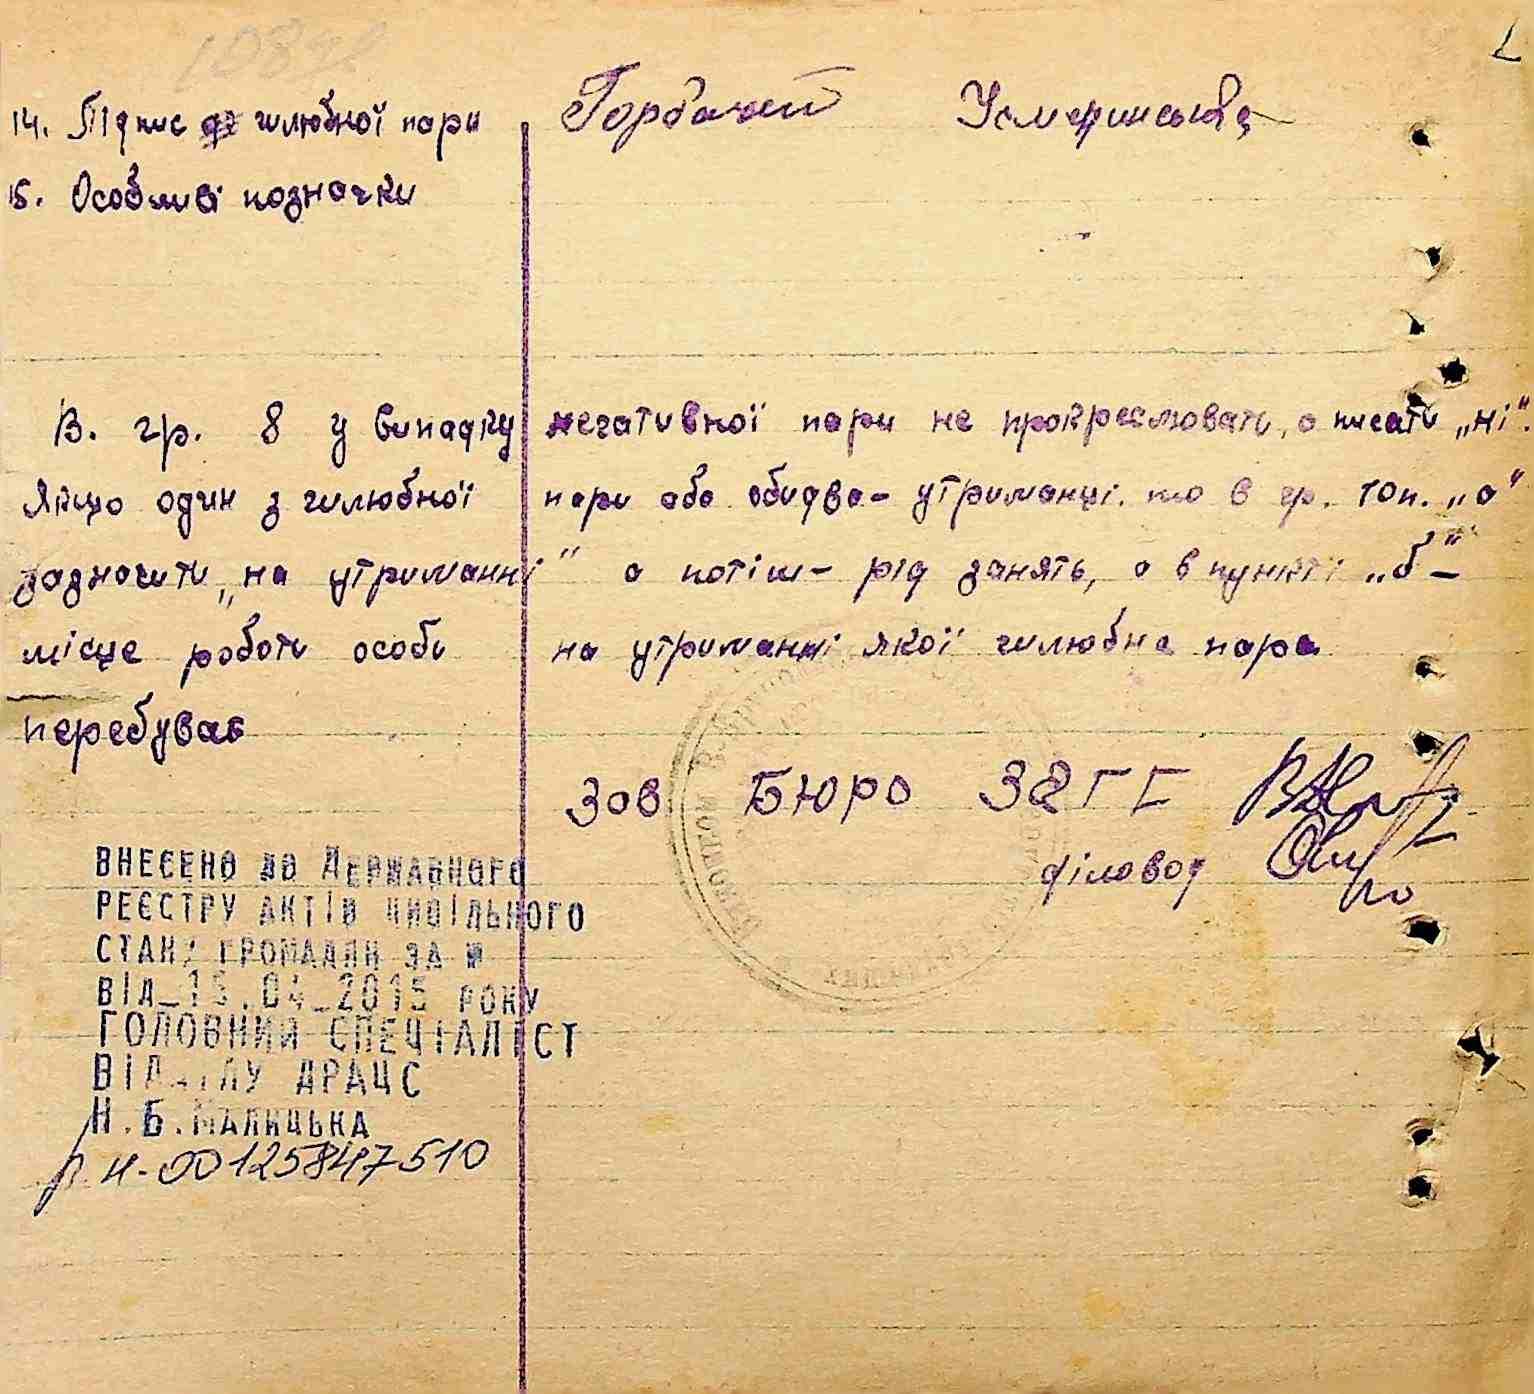 14. Підпис шлюбної пари Горбатий Усмединська
15. Особливі позначки
В. гр. 8 у випадку негативної пари не прокреслювати, а писати „ні“.
Якщо один з шлюбної пари або обидва - утриманці. то в гр. 10 п. „а“
зазначити „на утриманні“ а потім - рід занять, а в пункті „б“ -
місце роботи особи на утриманні якої шлюбна пара
перебуває
Зав Бюро ЗАГС
діловод
ВНЕСЕНО ДО ДЕРЖАВНОГО
РЕЄСТРУ АКТІВ ЦИВІЛЬНОГО
СТАНУ ГРОМАДЯН ЗА №
ВІД 15.04.2015 РОКУ
ГОЛОВНИЙ СПЕЦІАЛІСТ
ВІДДІЛУ ДРАЦС
Н.Б.МАЛИЦЬКА
00125847510